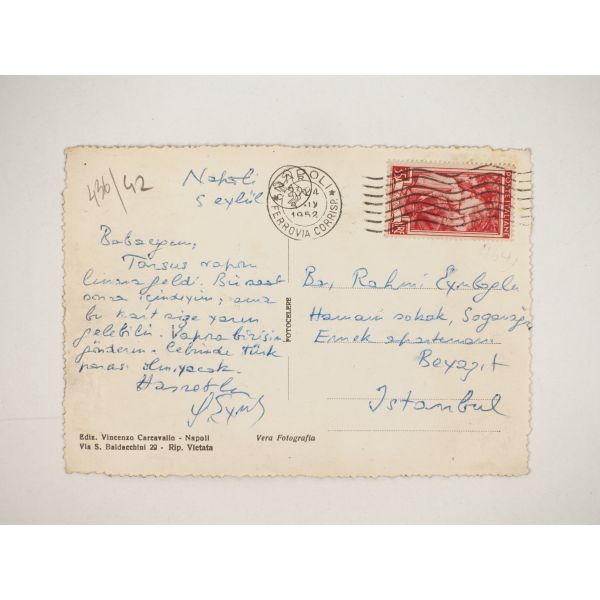 436/42
Napoli
5 eylül
NAPOLI
1952
FERROVIA CORRISP.
POSTE ITALIANE
Babacığım,
Tarsus vapuru
limana geldi. Bir saat
sonra içindeyim; ama
bu kart size yarın
gelebilir. Vapura birisini
gönderin. Cebimde Türk
parası olmıyacak.
Hasretle
FOTOCELERE
Bay Rahmi Eyuboğlu
Hamam sokak, Soğanağa
Emek apartmanı
Beyazıt
Istanbul
Ediz. Vincenzo Carcavallo - Napoli
Via S. Baldacchini 29 - Rip. Vietata
Vera Fotografia